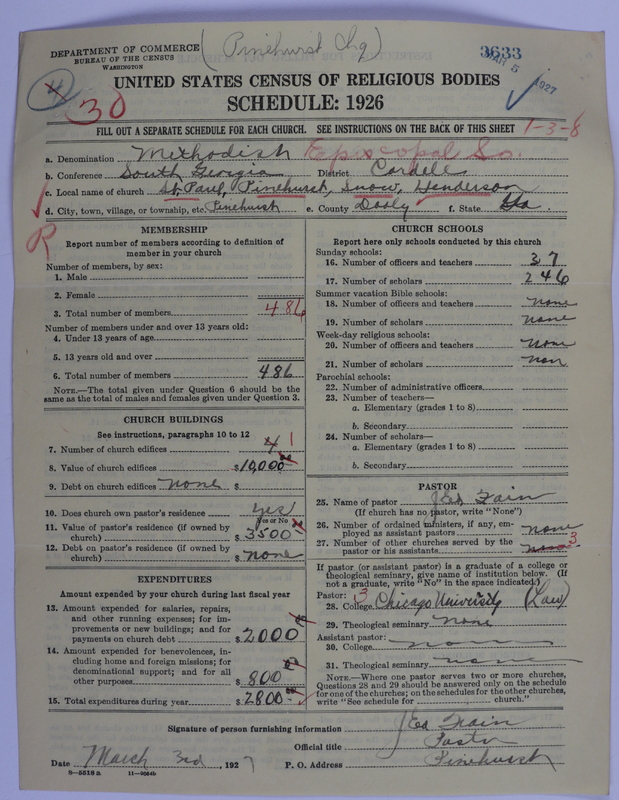 DEPARTMENT OF COMMERCE
BUREAU OF THE CENSUS
WASHINGTON
(Pinehurst Chg)
3633
MAR 5 1927
4
30
UNITED STATES CENSUS OF RELIGIOUS BODIES
SCHEDULE: 1926
FILL OUT A SEPARATE SCHEDULE FOR EACH CHURCH. SEE INSTRUCTIONS ON THE BACK OF THIS SHEET
1-3-8
a. Denomination Methodist Episcopal So.
b. Conference South Georgia District Cordele
c. Local name of church St. Paul, Pinehurst, Snow, Henderson
d. City, town, village, or township, etc. Pinehurst e. County Dooly f. State Ga
R
MEMBERSHIP
Report number of members according to definition of
member in your church
Number of members, by sex:
1. Male
2. Female
3. Total number of members 486
Number of members under and over 13 years old:
4. Under 13 years of age
5. 13 years old and over
6. Total number of members 486
NOTE.—The total given under Question 6 should be the
same as the total of males and females given under Question 3.
CHURCH BUILDINGS
See instructions, paragraphs 10 to 12
7. Number of church edifices 4 1
8. Value of church edifices $10,000 00
9. Debt on church edifices none $
10. Does church own pastor's residence yes
Yes or No
11. Value of pastor's residence (if owned by
church) $ 3500
12. Debt on pastor's residence (if owned by
church) $ none
EXPENDITURES
Amount expended by your church during last fiscal year
13. Amount expended for salaries, repairs,
and other running expenses; for im-
provements or new buildings; and for
payments on church debt $ 2000
14. Amount expended for benevolences, in-
cluding home and foreign missions; for
denominational support; and for all
other purposes $ 800
15. Total expenditures during year $ 2800
CHURCH SCHOOLS
Report here only schools conducted by this church
Sunday schools:
16. Number of officers and teachers 37
17. Number of scholars 246
Summer vacation Bible schools:
18. Number of officers and teachers none
19. Number of scholars none
Week-day religious schools:
20. Number of officers and teachers none
21. Number of scholars non
Parochial schools:
22. Number of administrative officers
23. Number of teachers—
a. Elementary (grades 1 to 8)
b. Secondary
24. Number of scholars—
a. Elementary (grades 1 to 8)
b. Secondary
PASTOR
25. Name of pastor J Ed Fain
(If church has no pastor, write "None")
26. Number of ordained ministers, if any, em-
ployed as assistant pastors none
27. Number of other churches served by the
pastor or his assistants none 3
If pastor (or assistant pastor) is a graduate of a college or
theological seminary, give name of institution below. (If
not a graduate, write "No" in the space indicated.)
Pastor: 3
28. College Chicago University (Law)
29. Theological seminary none
Assistant pastor:
30. College none
31. Theological seminary none
NOTE.—Where one pastor serves two or more churches,
Questions 28 and 29 should be answered only on the schedule
for one of the churches; on the schedules for the other churches,
write "See schedule for church."
Signature of person furnishing information J Ed Fain
Official title Pastor
Date March 3rd, 1927 P. O. Address Pinehurst
8—5518 a 11—9664b